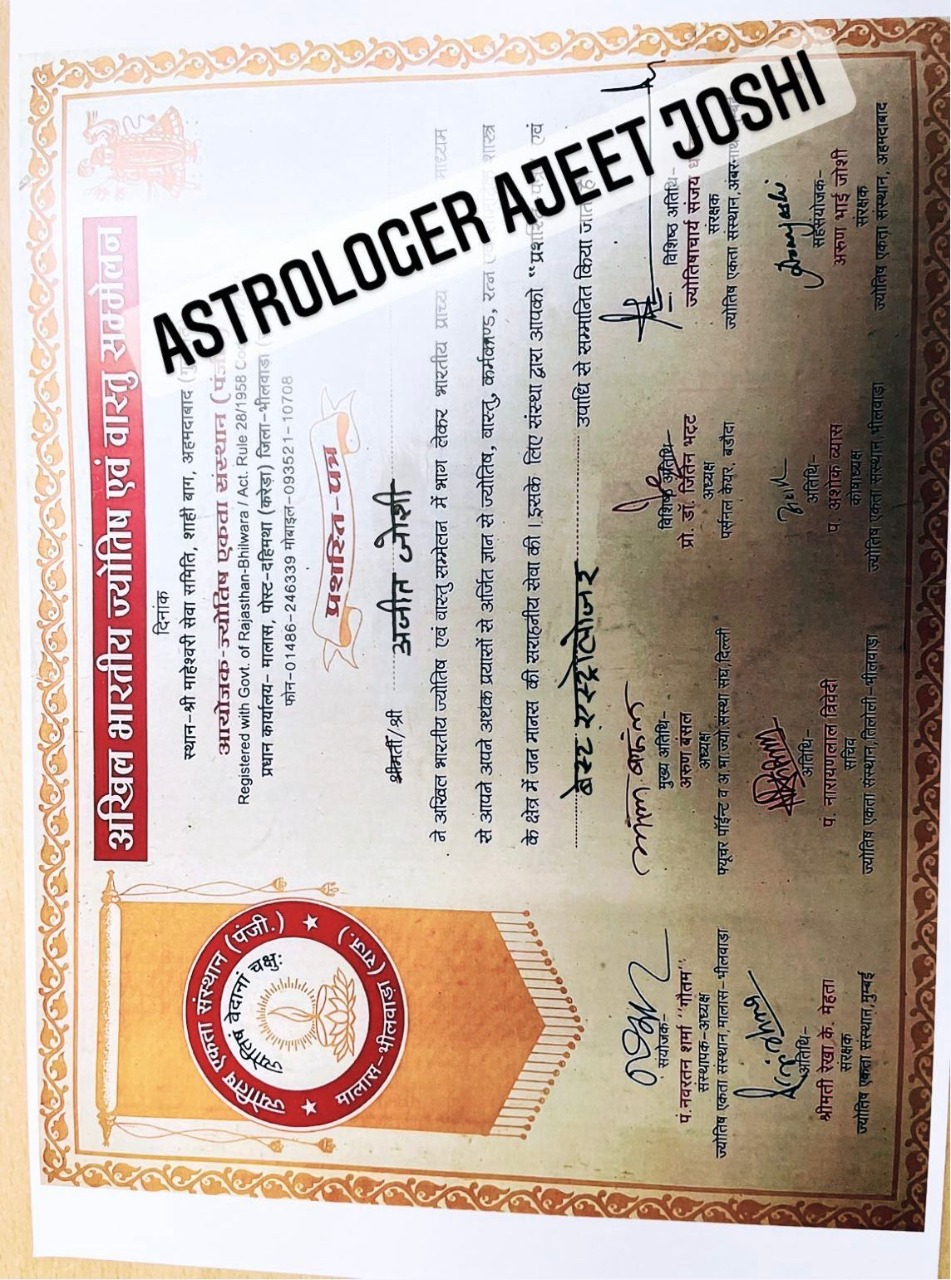 अखिल भारतीय ज्योतिष एवं वास्तु सम्मेलन
दिनांक
स्थान-श्री माहेश्वरी सेवा समिति, शाही बाग, अहमदाबाद
आयोजक-ज्योतिष एकता संस्थान
Registered with Govt. of Rajasthan-Bhilwara / Act. Rule 28/1958
प्रधान कार्यालय- मालास, पोस्ट-दहिमथा (करेड़ा) जिला-भीलवाड़ा
फोन-01486-246339 मोबाइल-093521-10708
प्रशस्ति-पत्र
श्रीमती/श्री अजीत जोशी
ने अखिल भारतीय ज्योतिष एवं वास्तु सम्मेलन में भाग लेकर भारतीय प्राच्य माध्यम
से आपने अपने अथक प्रयासों से अर्जित ज्ञान से ज्योतिष, वास्तु, कर्मकाण्ड, रत्न शास्त्र
के क्षेत्र में जन मानस की सराहनीय सेवा की। इसके लिए संस्था द्वारा आपको "प्रशस्ति एवं
बेस्ट एस्ट्रोलोजर उपाधि से सम्मानित किया
ASTROLOGER AJEET JOSHI
ज्योतिष एकता संस्थान (पंजी.)
ज्योतिषं वेदानां चक्षुः
मालास-भीलवाड़ा (राज.)
संयोजक-
पं. नवरतन शर्मा "गौतम"
संस्थापक-अध्यक्ष
ज्योतिष एकता संस्थान, मालास-भीलवाड़ा
मुख्य अतिथि-
अरुण बंसल
अध्यक्ष
फ्यूचर पॉईन्ट व अ.भा.ज्यो संस्था संघ, दिल्ली
विशिष्ठ अतिथि-
प्रो. डॉ. जितेन भट्ट
अध्यक्ष
पर्सनल केयर, बड़ौदा
विशिष्ठ अतिथि-
ज्योतिषाचार्य संजय
संरक्षक
ज्योतिष एकता संस्थान,
अतिथि-
श्रीमती रेखा के. मेहता
संरक्षक
ज्योतिष एकता संस्थान, मुम्बई
अतिथि-
प. नारायणलाल त्रिवेदी
सचिव
ज्योतिष एकता संस्थान, तिलोली-भीलवाड़ा
अतिथि-
प. अशोक व्यास
कोषाध्यक्ष
ज्योतिष एकता संस्थान भीलवाड़ा
सहसंयोजक-
अरुण भाई जोशी
संरक्षक
ज्योतिष एकता संस्थान, अहमदाबाद